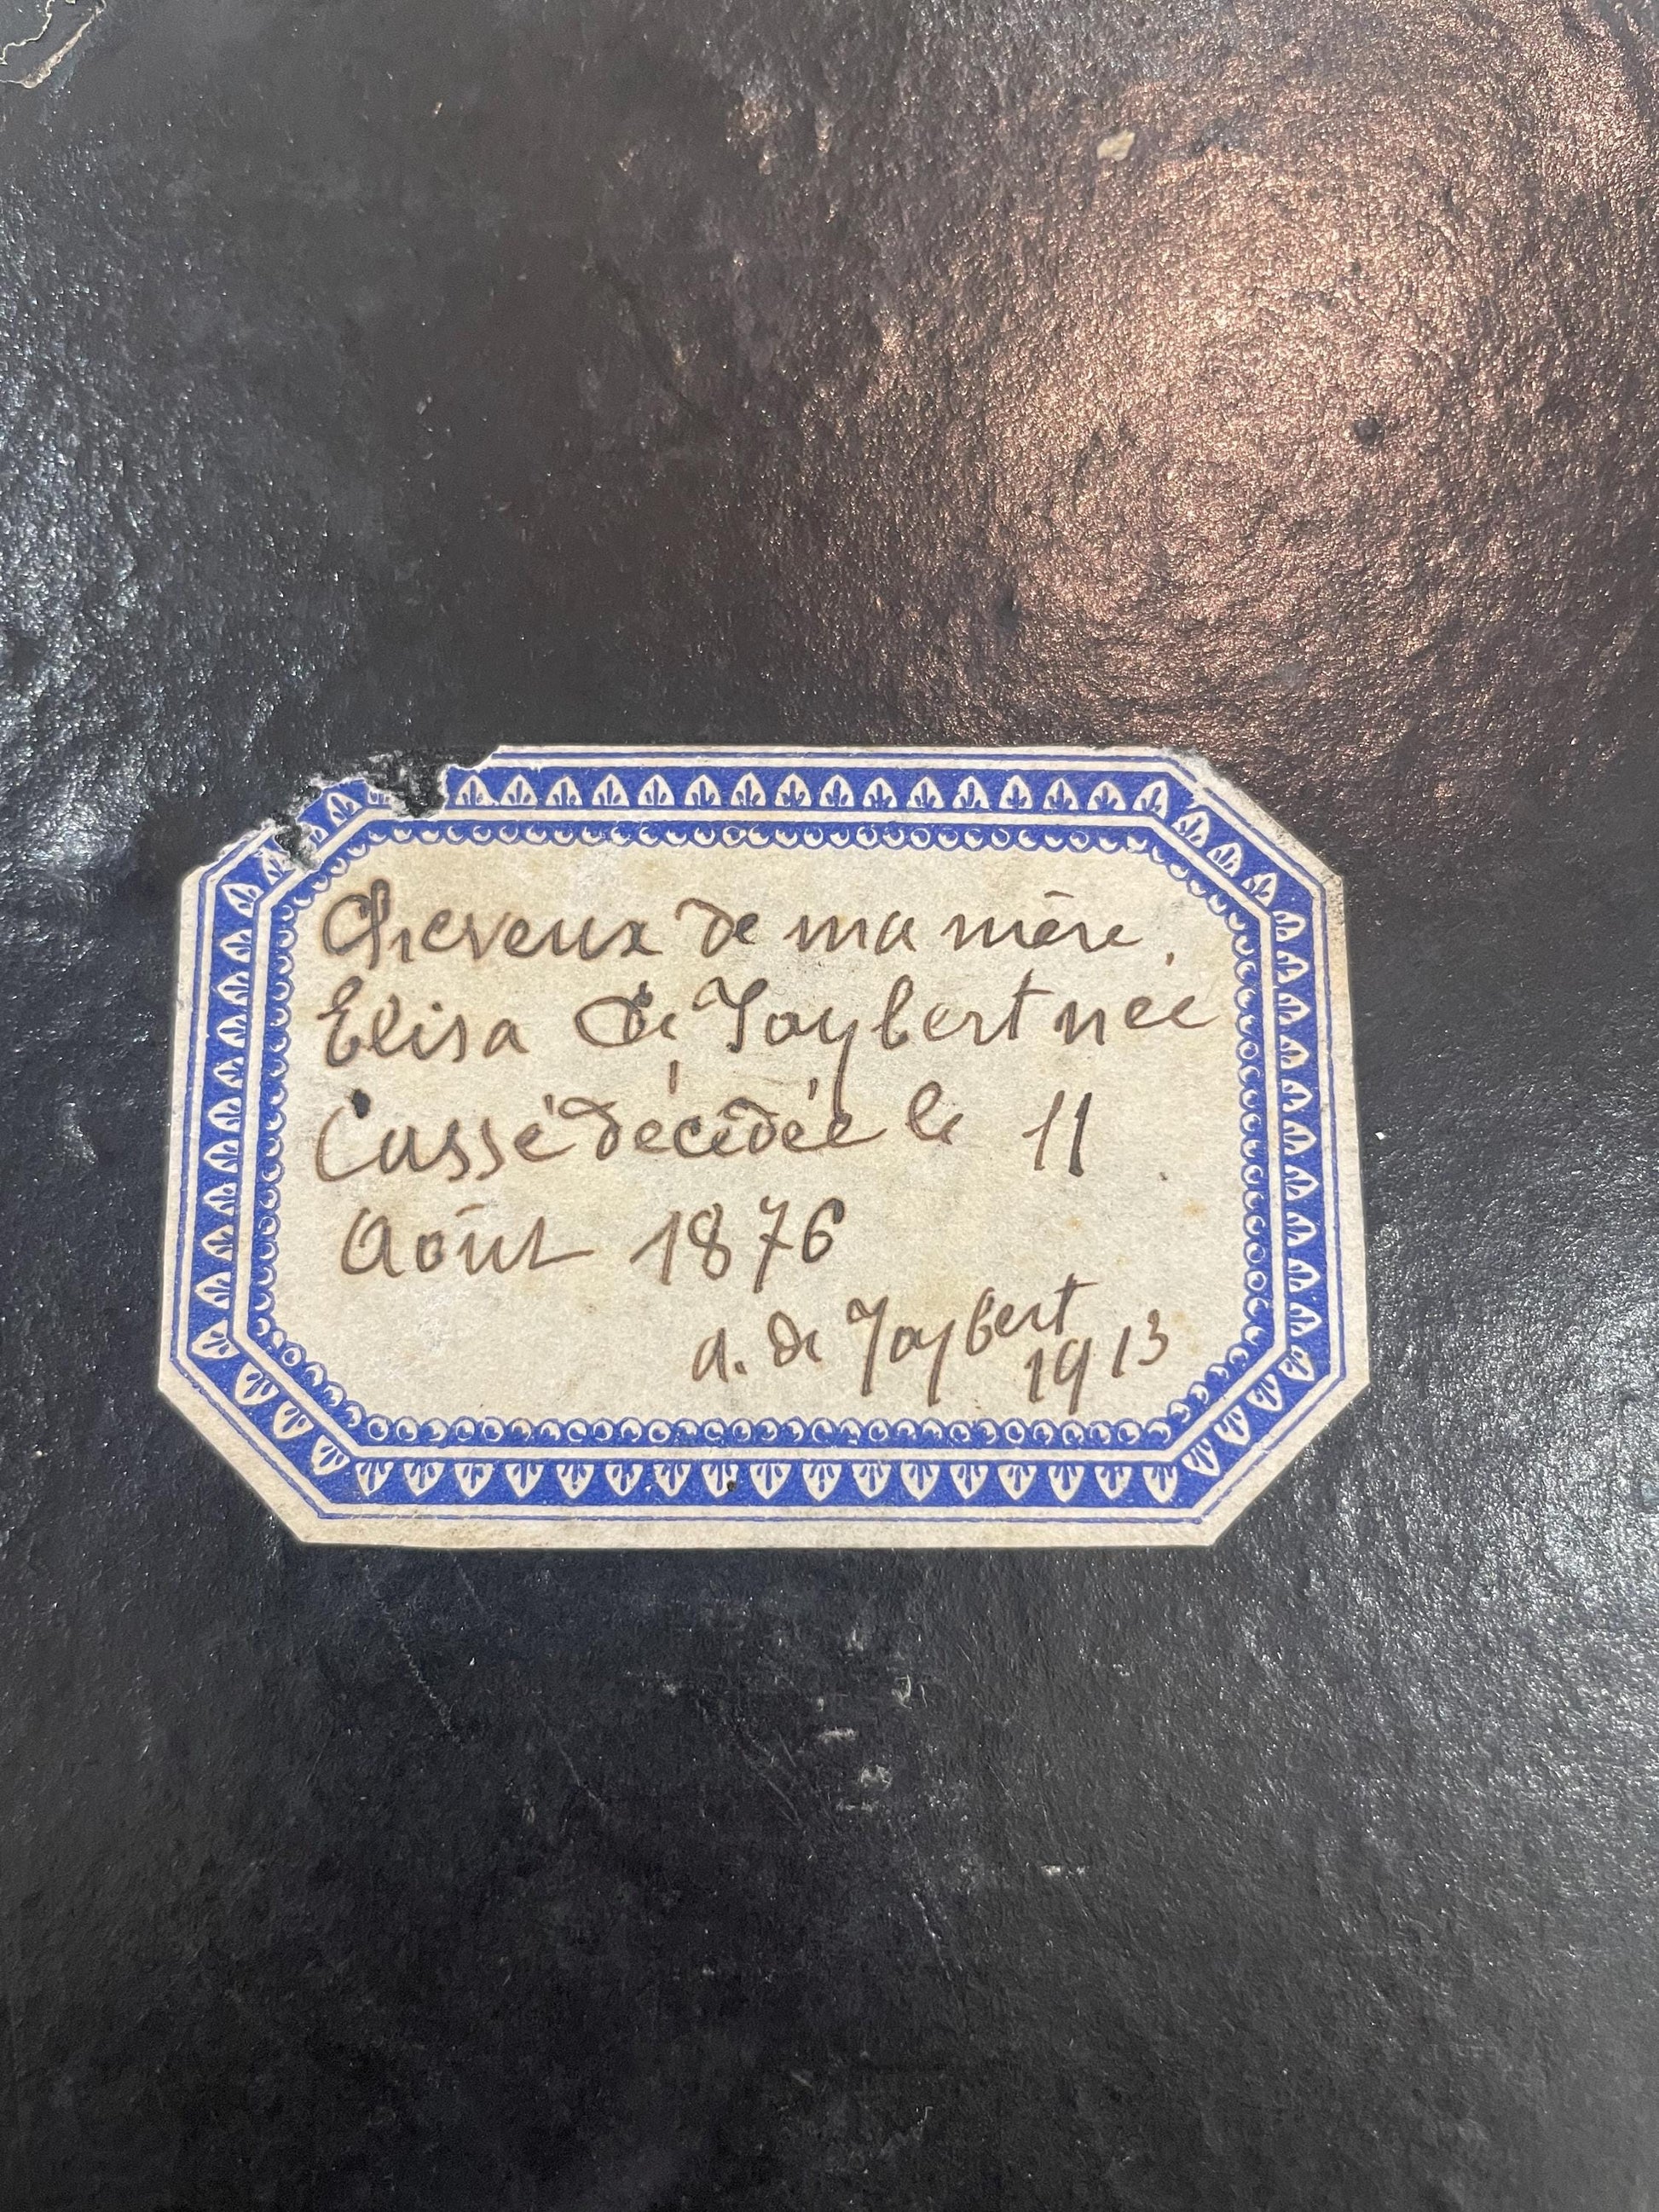 Cheveux de ma mère.
Elisa de Joybert née
Cassé décédée le 11
Août 1876
a. de Joybert
1913